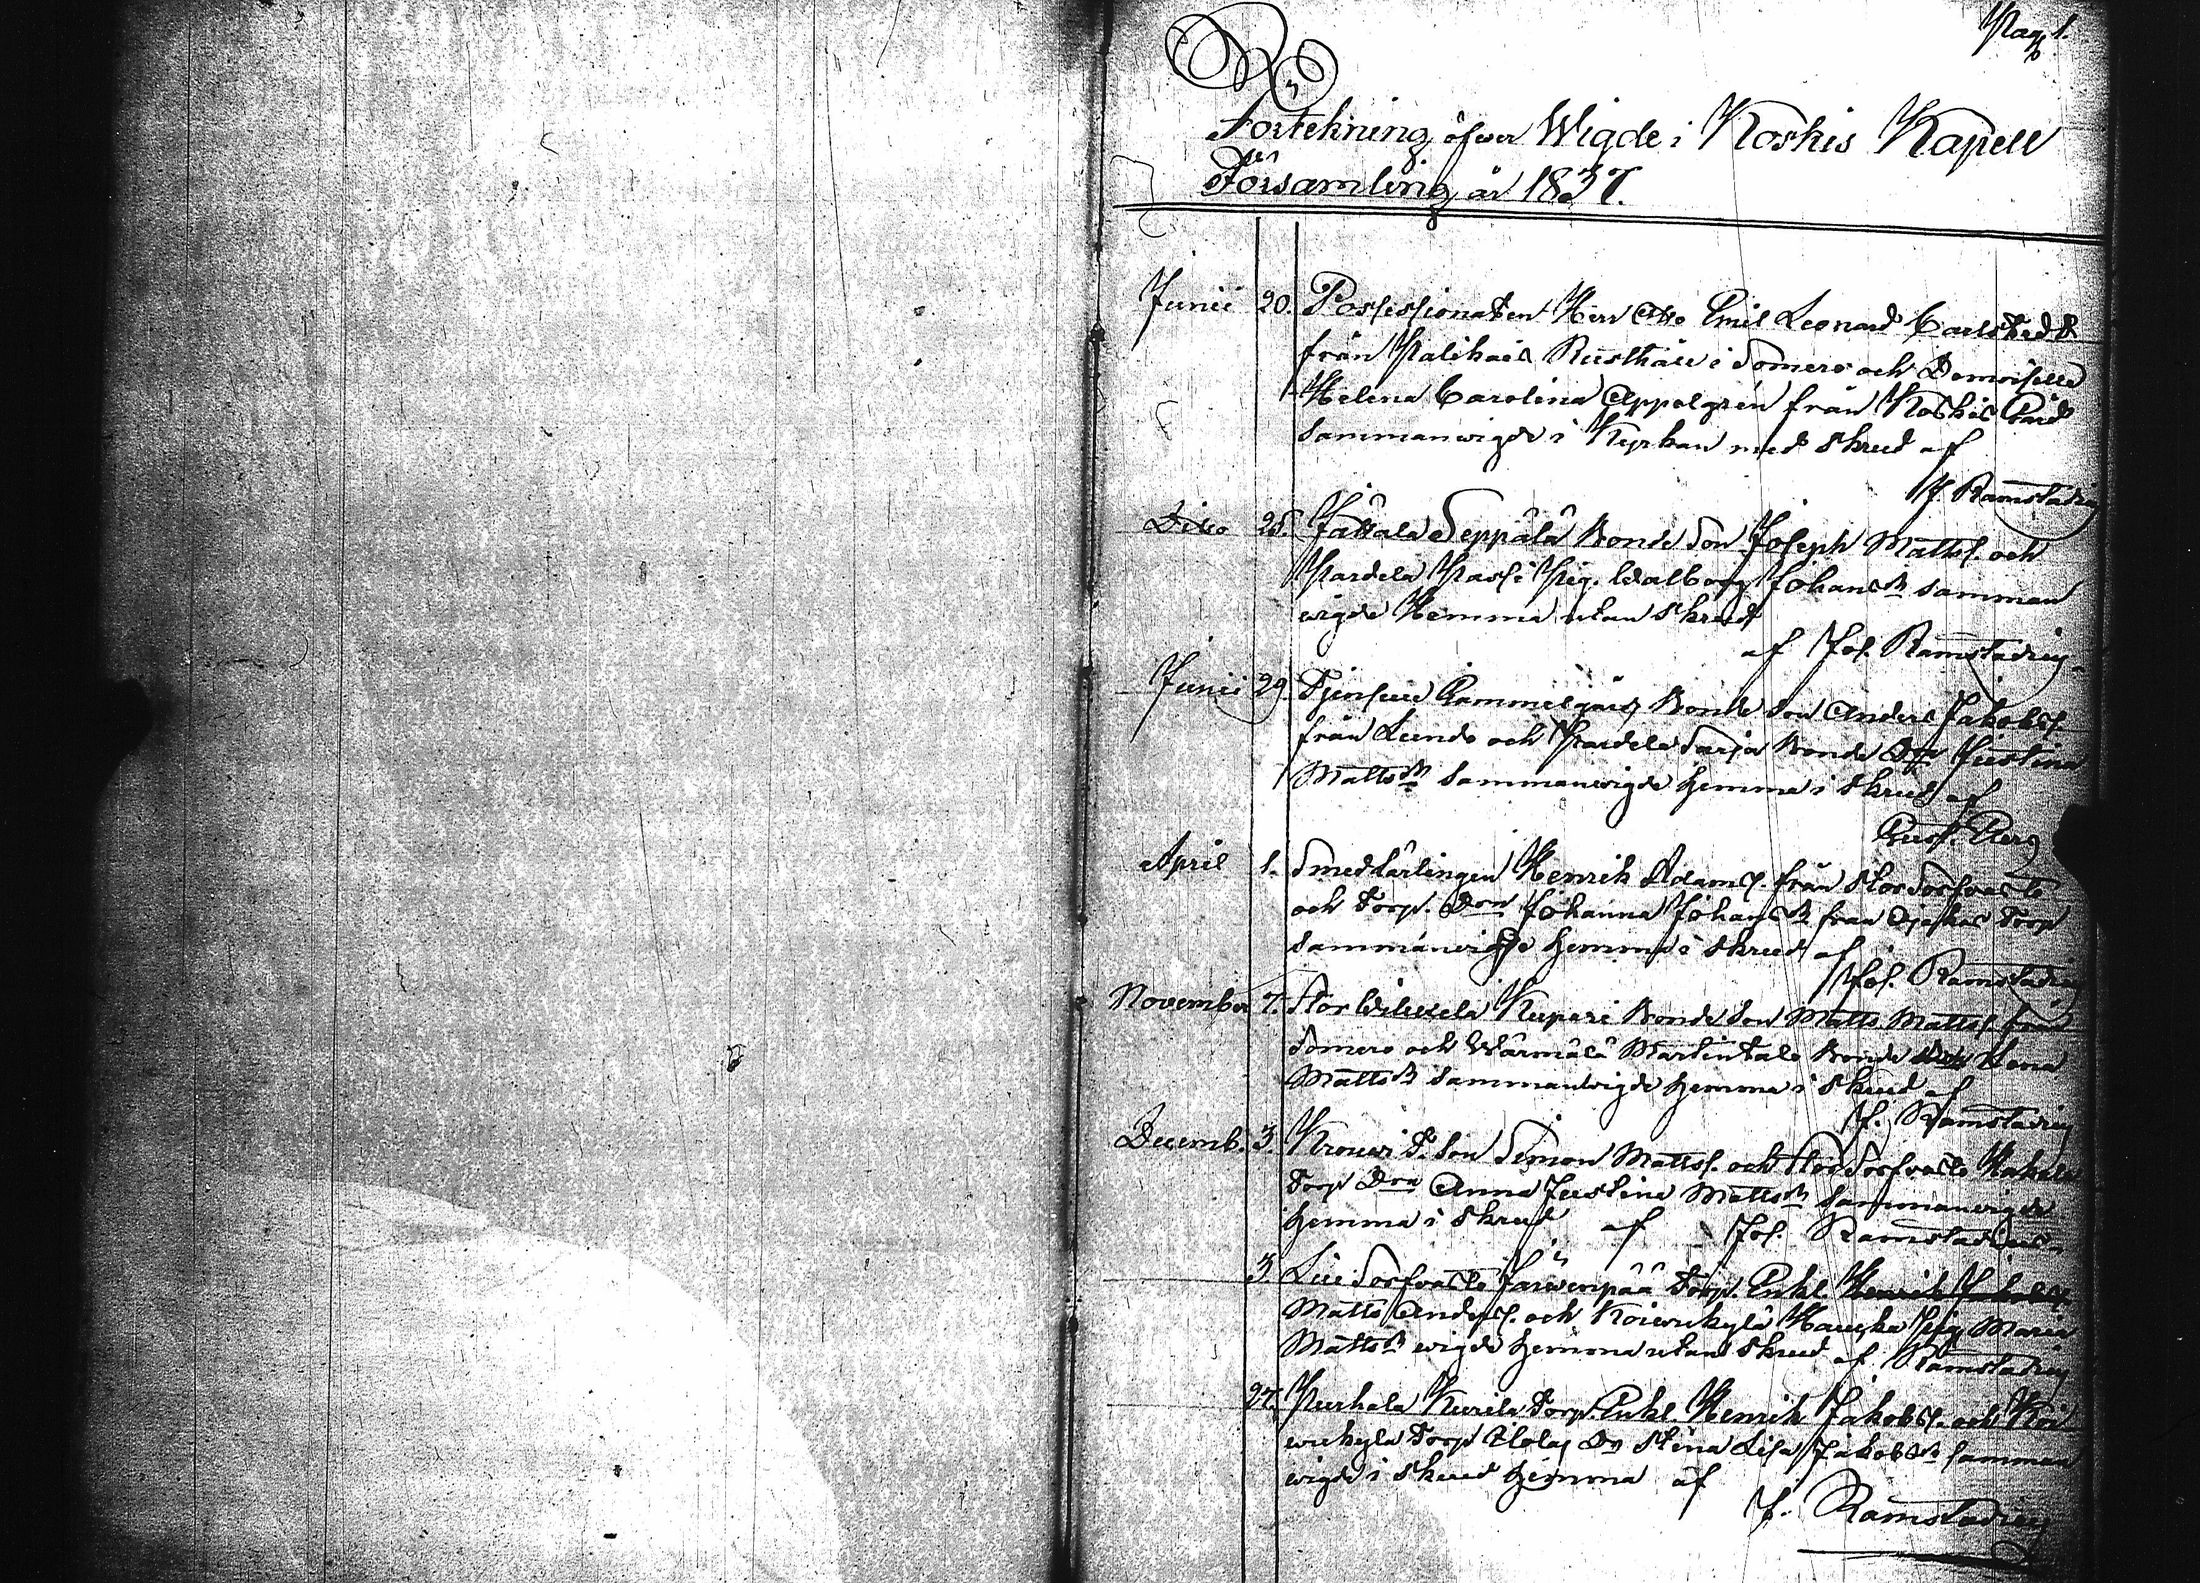 Pag 1.
Förtekning öfwer Wigde i Koskis Kapell
Församling år 1837.
Junii 20. Possessionaten Herr Otto Emil Leonard Carlstedt
från Palikais Rusthåll i Somero och Demoiselle
Helena Carolina Appelgrén från Koskis Gård
sammanwigde i Kyrkan med skrud af
J. Ramstadius
Dito 25. Jättala Seppälä Bonde Son Joseph Mattss. och
Partela Passi Pig. Walborg Johansdr samman
wigde Hemma utan Skrud
af Joh. Ramstadius
Junii 29. Gammelgård Bonde Son Anders Jakobss.
från Lundo och Partela Sarja Bonde Dr Justina
Mattsdr sammanwigde hemma i Skrud af
Gust. Berg
April 1. Smedlärlingen Henrik Adamss. från Stor Sorfvasto
och Torp. Dotn Johanna Johansdr från Torp
sammanwigde hemma i skrud af
Joh. Ramstadius
November 7. Stor Wiluxela Kupari Bonde Son Matts Mattss. från
Somero och Wärmälä Martintalo Bonde Lena
Mattsdr sammanwigde hemma i skrud af
J. Ramstadius
Decemb. 3. Krouvi T. Son Simon Mattss. och Stor Sorfvasto
Torp Dra Anna Justina Mattsdr sammanwigde
hemma i skrud af Joh. Ramstadius
3 Lill Sorfvasto Järwenpää Torp. Enkl. Henrik Jakobss.
Matts Anderss. och Koiwukylä Hauska Pig Maria
Mattsdr wigde hemma utan skrud af Ramstadius
27. Purhala Kurila Torp. Enkl. Henrik Jakobss. och Koi
wukylä Torp Dr Stina Lisa Jakobsdr samman
wigde i skrud hemma af
J. Ramstadius